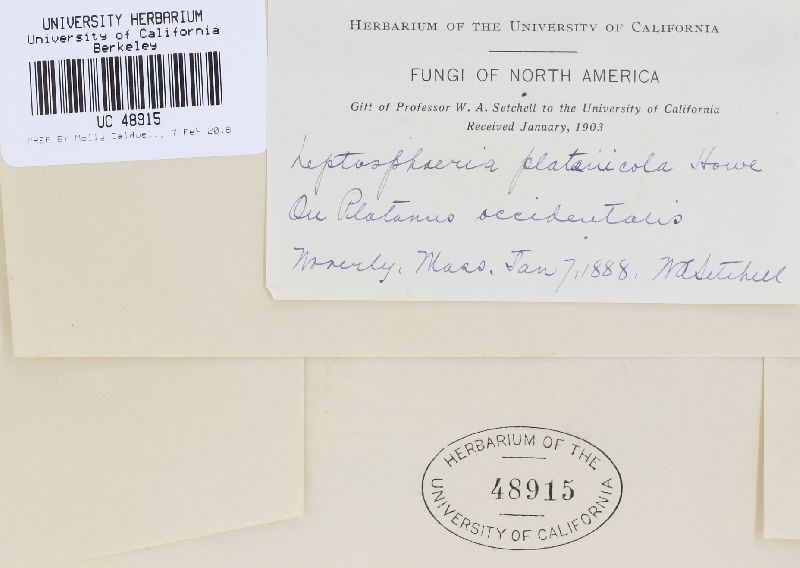 UNIVERSITY HERBARIUM
University of California
Berkeley
UC 48915
PREP BY Molly Caldwell, 7 Feb 2018
HERBARIUM OF THE UNIVERSITY OF CALIFORNIA
FUNGI OF NORTH AMERICA
Gift of Professor W. A. Setchell to the University of California
Received January, 1903
Leptosphaeria platanicola Howe
On Platanus occidentalis
Waverly, Mass. Jan 7, 1888. WASetchell
HERBARIUM OF THE
48915
UNIVERSITY OF CALIFORNIA